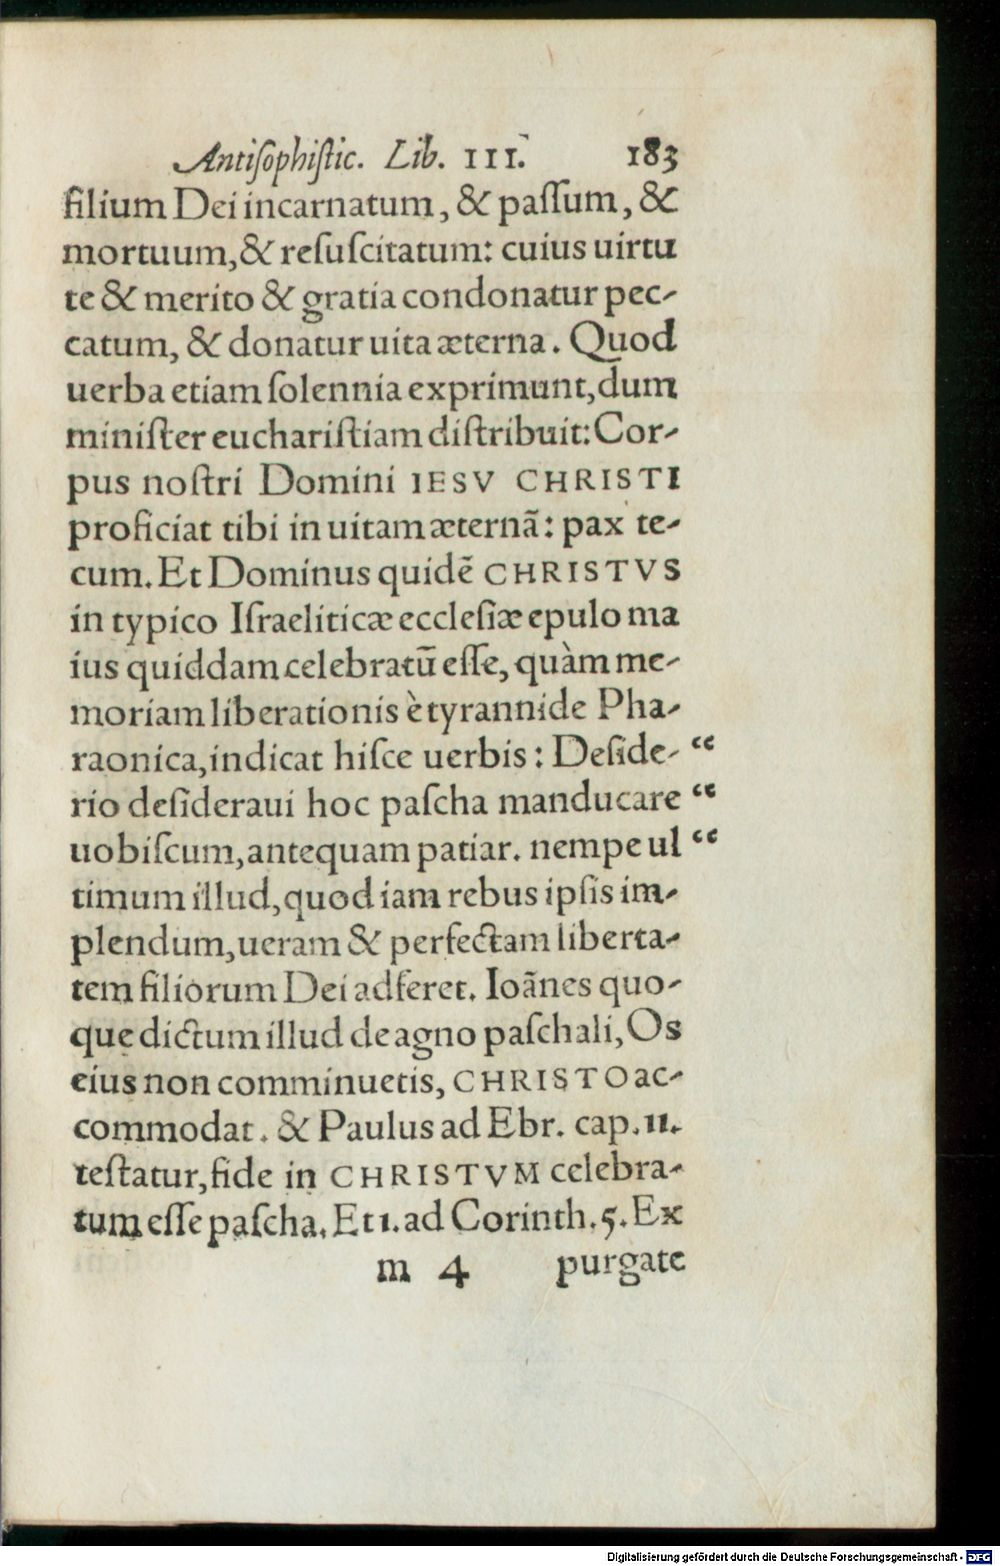 Antiſophiſtic. Lib. III. 183
filium Dei incarnatum, & paſſum, &
mortuum, & reſuſcitatum: cuius uirtu
te & merito & gratia condonatur pec-
catum, & donatur uita æterna. Quod
uerba etiam ſolennia exprimunt, dum
miniſter euchariſtiam diſtribuit: Cor-
pus noſtri Domini IESV CHRISTI
proficiat tibi in uitam æternã: pax te-
cum. Et Dominus quidẽ CHRISTVS
in typico Iſraeliticæ eccleſiæ epulo ma
ius quiddam celebratũ eſſe, quàm me-
moriam liberationis è tyrannide Pha-
raonica, indicat hiſce uerbis: Deſide- “
rio deſideraui hoc paſcha manducare “
uobiſcum, antequam patiar. nempe ul “
timum illud, quod iam rebus ipſis im-
plendum, ueram & perfectam liberta-
tem filiorum Dei adferet. Ioãnes quo-
que dictum illud de agno paſchali, Os
eius non comminuetis, CHRISTO ac-
commodat. & Paulus ad Ebr. cap. 11.
teſtatur, fide in CHRISTVM celebra-
tum eſſe paſcha. Et 1. ad Corinth. 5. Ex
m 4 purgate
Digitalisierung gefördert durch die Deutsche Forschungsgemeinschaft - DFG